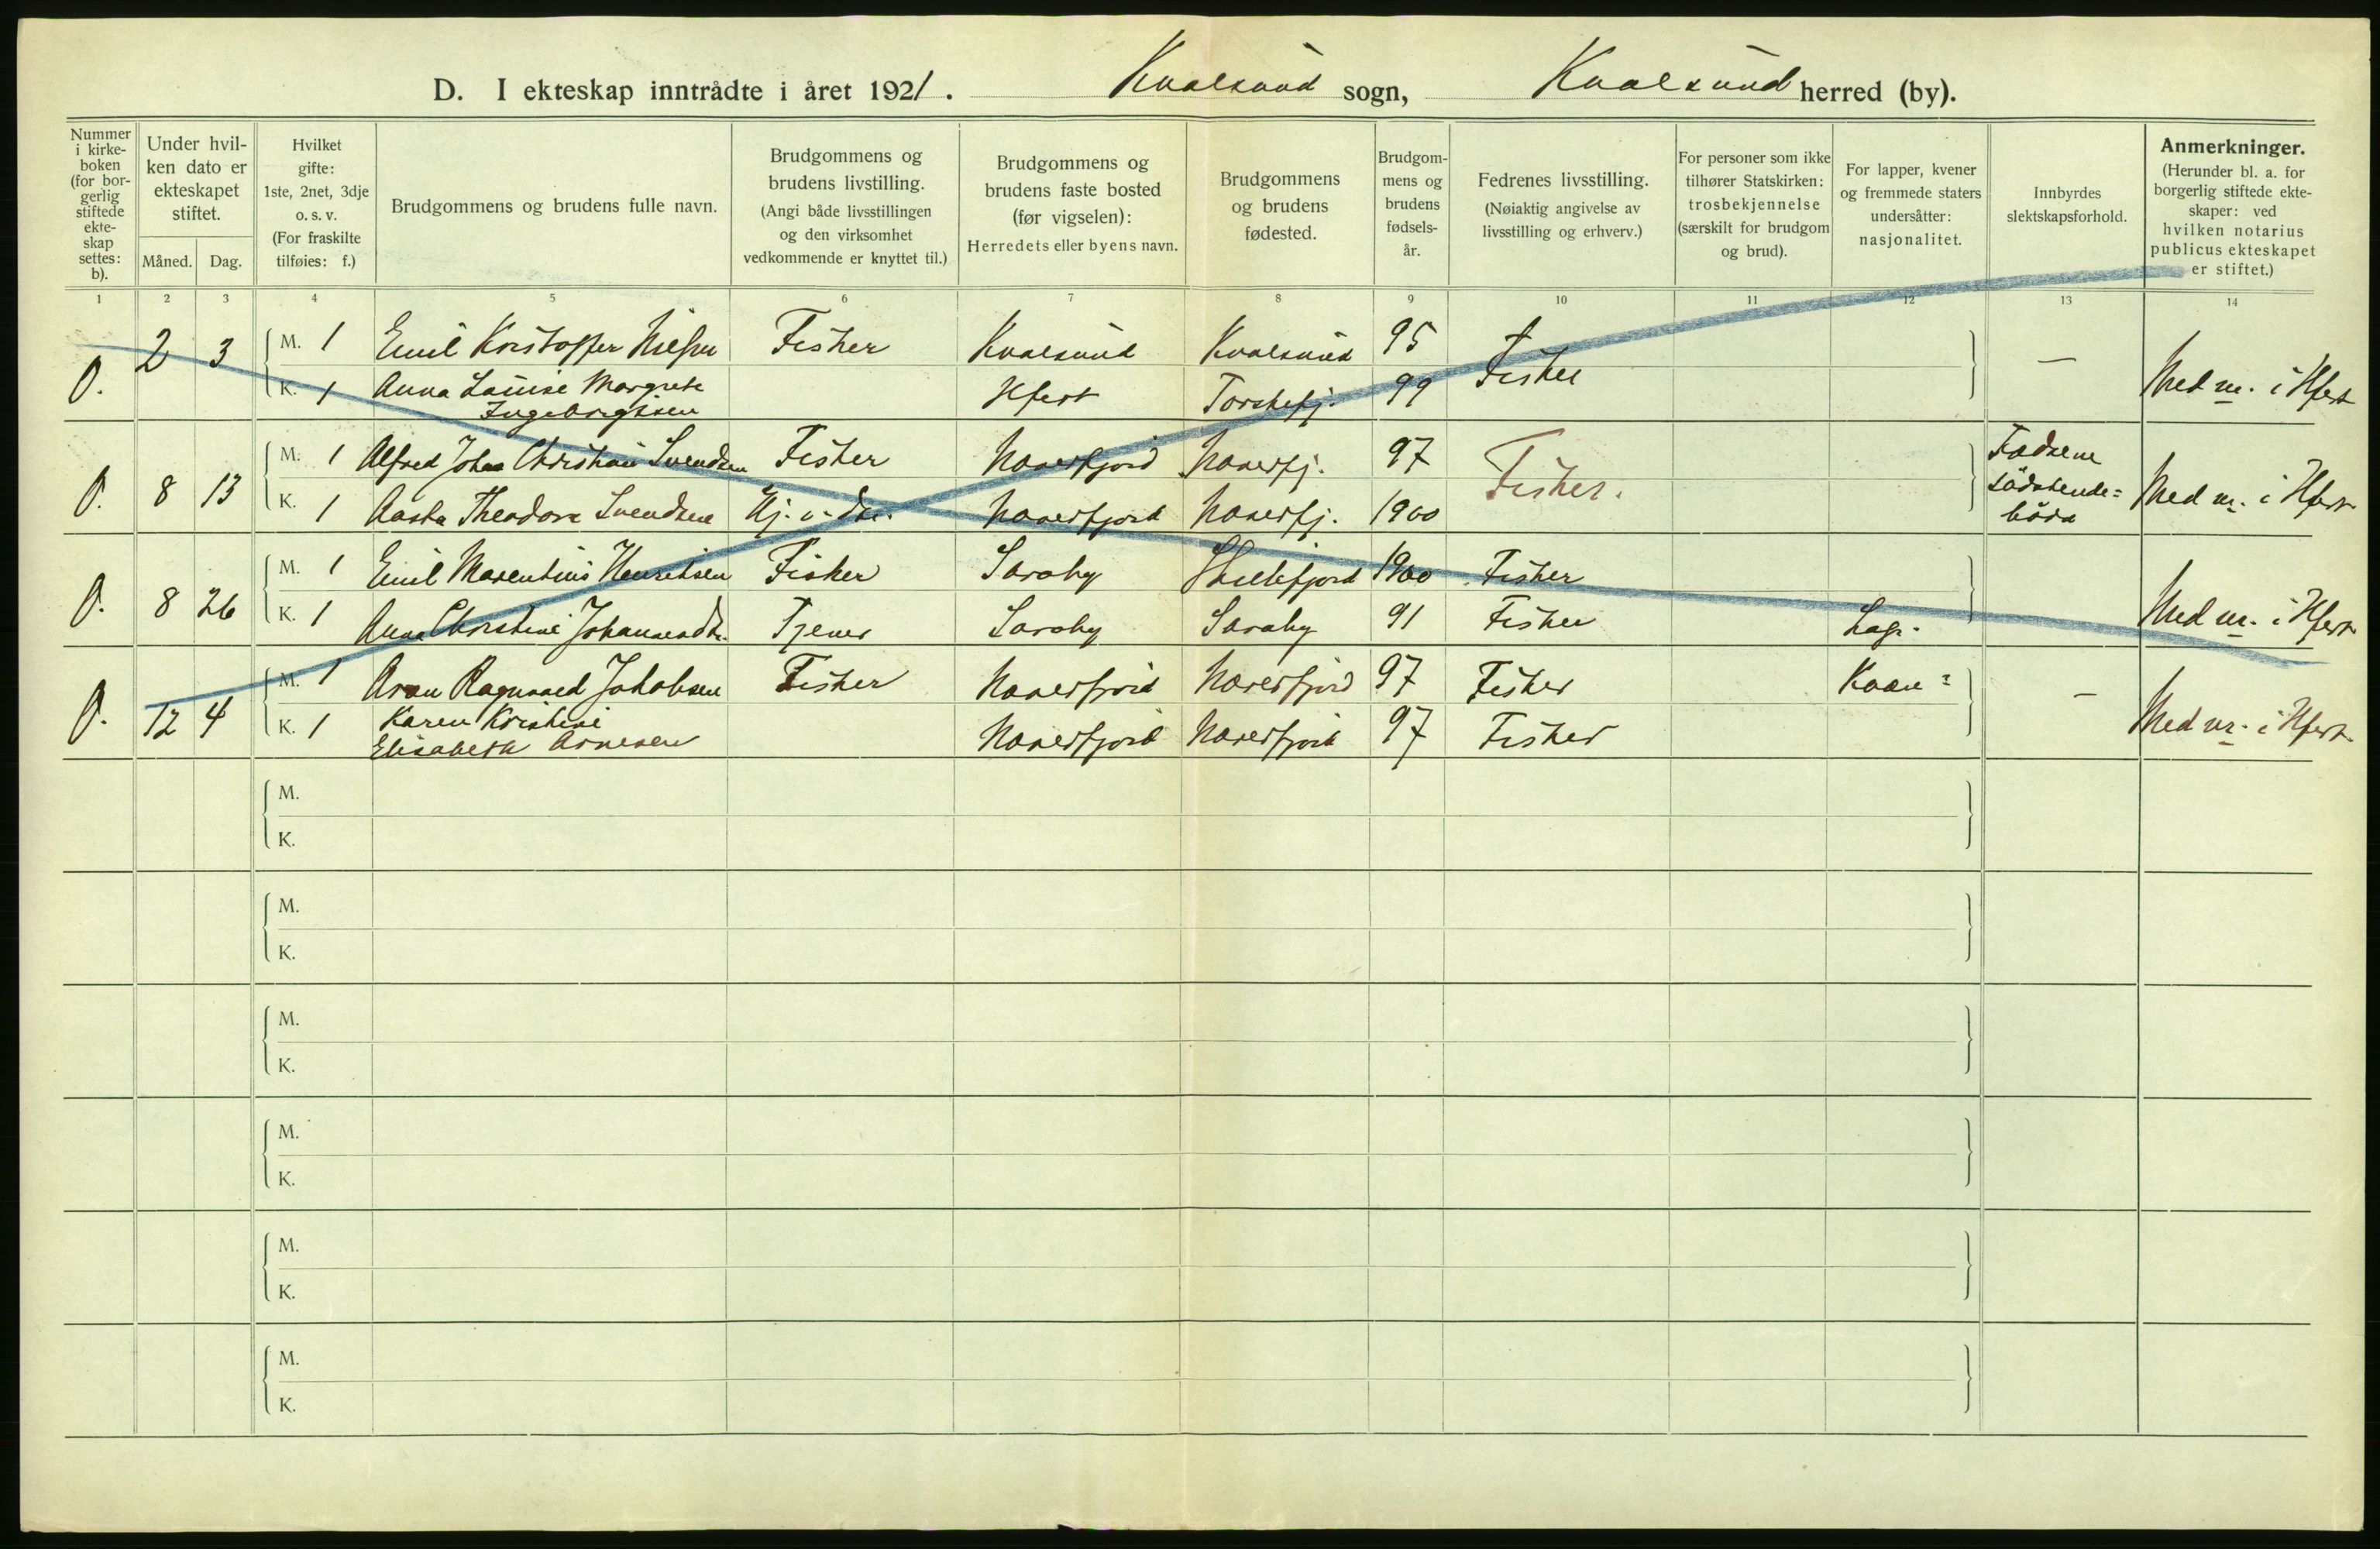 D. I ekteskap inntrådte i året 1921. Kvalsund sogn, Kvalsund herred (by).
Nummer
i kirke-
boken
(for bor-
gerlig
stiftede
ekte-
skap
settes:
b).
Under hvil-
ken dato er
ekteskapet
stiftet.
Måned. Dag.
Hvilket
gifte:
1ste, 2net, 3dje
o. s. v.
(For fraskilte
tilføies: f.)
Brudgommens og brudens fulle navn.
Brudgommens og
brudens livstilling.
(Angi både livsstillingen
og den virksomhet
vedkommende er knyttet til.)
Brudgommens og
brudens faste bosted
(før vigselen):
Herredets eller byens navn.
Brudgommens
og brudens
fødested.
Brudgom-
mens og
brudens
fødsels-
år.
Fedrenes livsstilling.
(Nøiaktig angivelse av
livsstilling og erhverv.)
For personer som ikke
tilhører Statskirken:
trosbekjennelse
(særskilt for brudgom
og brud).
For lapper, kvener
og fremmede staters
undersåtter:
nasjonalitet.
Innbyrdes
slektskapsforhold.
Anmerkninger.
(Herunder bl. a. for
borgerlig stiftede ekte-
skaper: ved
hvilken notarius
publicus ekteskapet
er stiftet.)
1 2 3 4 5 6 7 8 9 10 11 12 13 14
0. 2 3 M. 1 Emil Kristoffer Nilsen Fisker Kvalsund Kvalsund 95 Fisker — Med nr. i Hfest
K. 1 Anna Louise Margrete
Ingebrigtsen Hfest Torskefj. 99
0. 8 13 M. 1 Alfred Johan Christian Svendsen Fisker Naverfjord Naverfj. 97 Fisker. Fædrene
södskende=
börn Med nr. i Hfest
K. 1 Aasta Theodora Svendsen Hj. v. Naverfjord Naverfj. 1900
0. 8 26 M. 1 Emil Marentius Henriksen Fisker Saraby Skillefjord 1900 Fisker Med nr. i Hfest
K. 1 Anna Christine Johannesdtr. Tjener Saraby Saraby 91 Fisker Lap.
0. 12 4 M. 1 Aron Ragnvald Jakobsen Fisker Naverfjord Naverfjord 97 Fisker Kvæn — Med nr. i Hfest
K. 1 Karen Kristine
Elisabeth Arnesen Naverfjord Naverfjord 97 Fisker
M.
K.
M.
K.
M.
K.
M.
K.
M.
K.
M.
K.